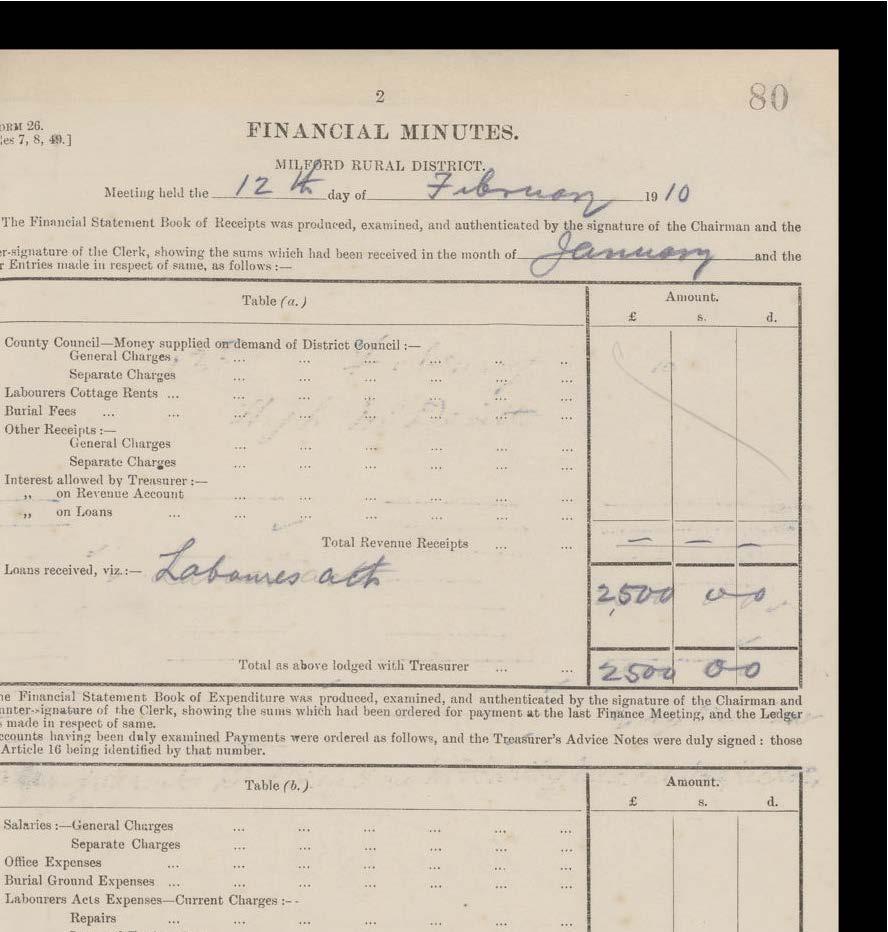 2
80
ORM 26.
les 7, 8, 49.]
FINANCIAL MINUTES.
MILFORD RURAL DISTRICT.
Meeting held the 12th day of February 1910
The Financial Statement Book of Receipts was produced, examined, and authenticated by the signature of the Chairman and the
er-signature of the Clerk, showing the sums which had been received in the month of January and the
r Entries made in respect of same, as follows :—
Table (a.) Amount.
£ s. d.
County Council—Money supplied on demand of District Council :—
General Charges ... ... ... ... ... ...
Separate Charges ... ... ... ... ... ...
Labourers Cottage Rents ... ... ... ... ... ... ...
Burial Fees ... ... ... ... ... ... ... ...
Other Receipts :—
General Charges ... ... ... ... ... ...
Separate Charges ... ... ... ... ... ...
Interest allowed by Treasurer :—
„ on Revenue Account ... ... ... ... ... ...
„ on Loans ... ... ... ... ... ... ...
Total Revenue Receipts ... ... — — —
Loans received, viz.:— Laboures act
2,500 0 0
Total as above lodged with Treasurer ... ... 2500 0 0
he Financial Statement Book of Expenditure was produced, examined, and authenticated by the signature of the Chairman and
unter-signature of the Clerk, showing the sums which had been ordered for payment at the last Finance Meeting, and the Ledger
s made in respect of same.
ccounts having been duly examined Payments were ordered as follows, and the Treasurer's Advice Notes were duly signed : those
Article 16 being identified by that number.
Table (b.) Amount.
£ s. d.
Salaries :—General Charges ... ... ... ... ... ...
Separate Charges ... ... ... ... ... ...
Office Expenses ... ... ... ... ... ... ...
Burial Ground Expenses ... ... ... ... ... ... ...
Labourers Acts Expenses—Current Charges :--
Repairs ... ... ... ... ... ... ...